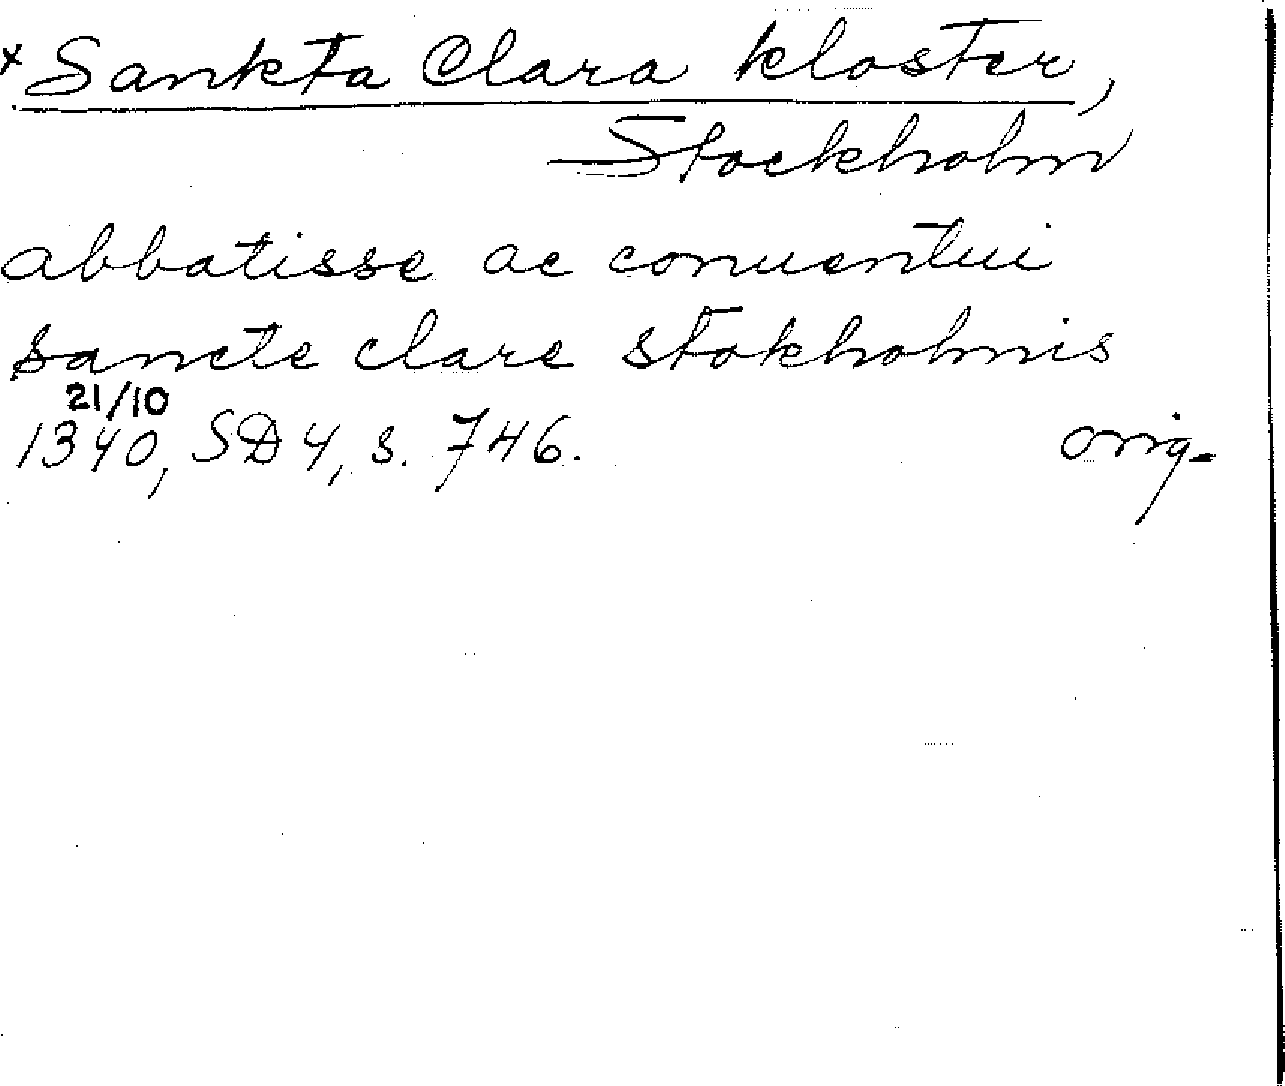 x Sankta Clara kloster,
Stockholm
abbatisse ac conuentui
sancte clare stokholmis
21/10
1340, SD 4, s. 746. orig.